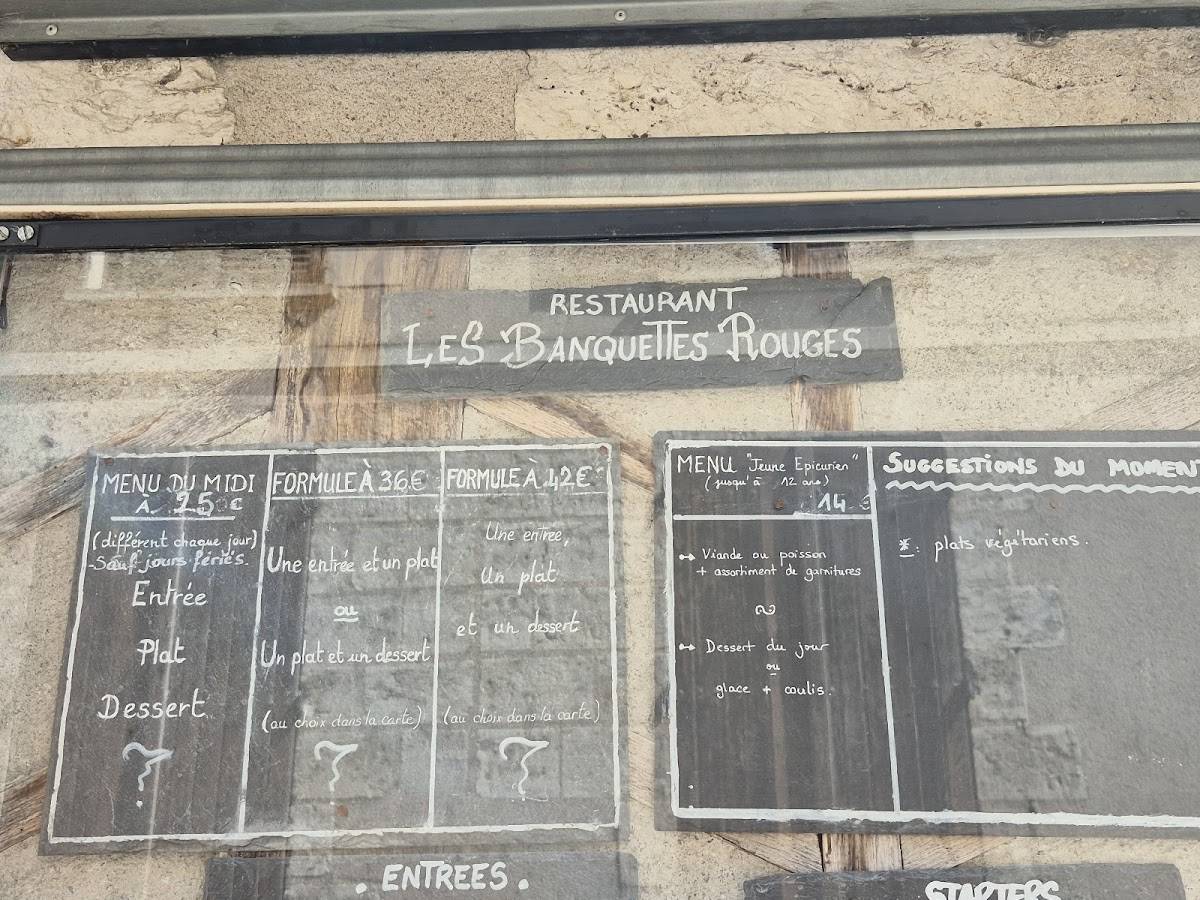 RESTAURANT
LES BANQUETTES ROUGES
MENU DU MIDI
À 25 €
(différent chaque jour)
-Sauf jours fériés.
Entrée
Plat
Dessert
?
FORMULE À 36€
Une entrée et un plat
ou
Un plat et un dessert
(au choix dans la carte)
?
FORMULE À 42€
Une entrée,
Un plat
et un dessert
(au choix dans la carte)
?
MENU "Jeune Epicurien"
(jusqu'à 12 ans)
14 €
Viande ou poisson
+ assortiment de garnitures
Dessert du jour
ou
glace + coulis.
SUGGESTIONS DU MOMENT
* : plats végétariens.
. ENTREES .
STARTERS